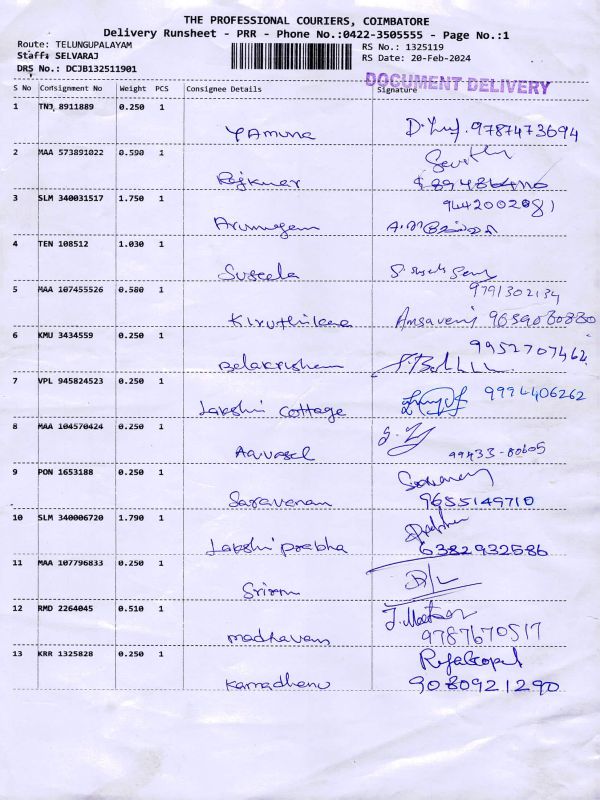 THE PROFESSIONAL COURIERS, COIMBATORE
Delivery Runsheet - PRR - Phone No.:0422-3505555 - Page No.:1
Route: TELUNGUPALAYAM RS No.: 1325119
Staff: SELVARAJ RS Date: 20-Feb-2024
DRS No.: DCJB132511901
DOCUMENT DELIVERY
S No Consignment No Weight PCS Consignee Details Signature
1 TNJ 8911889 0.250 1
Yamuna 9787473694
2 MAA 573891022 0.590 1
Rajkumar
3 SLM 340031517 1.750 1 9442002081
Arumugam
4 TEN 108512 1.030 1
Suseela
5 MAA 107455526 0.580 1 9791302134
Kiruthikaa Amsaveni 9659080880
6 KMU 3434559 0.250 1 9952707462
Balakrishnan
7 VPL 945824523 0.250 1 9994406262
Lakshi Cottage
8 MAA 104570424 0.250 1
Aavasel 99433-80605
9 PON 1653188 0.250 1
Saravanan 9655149710
10 SLM 340006720 1.790 1
Lakshi prabha 6382932586
11 MAA 107796833 0.250 1
Sriram
12 RMD 2264045 0.510 1
madhavan 9787670517
13 KRR 1325828 0.250 1 Rajalgopal
Kamadhenu 9080921290